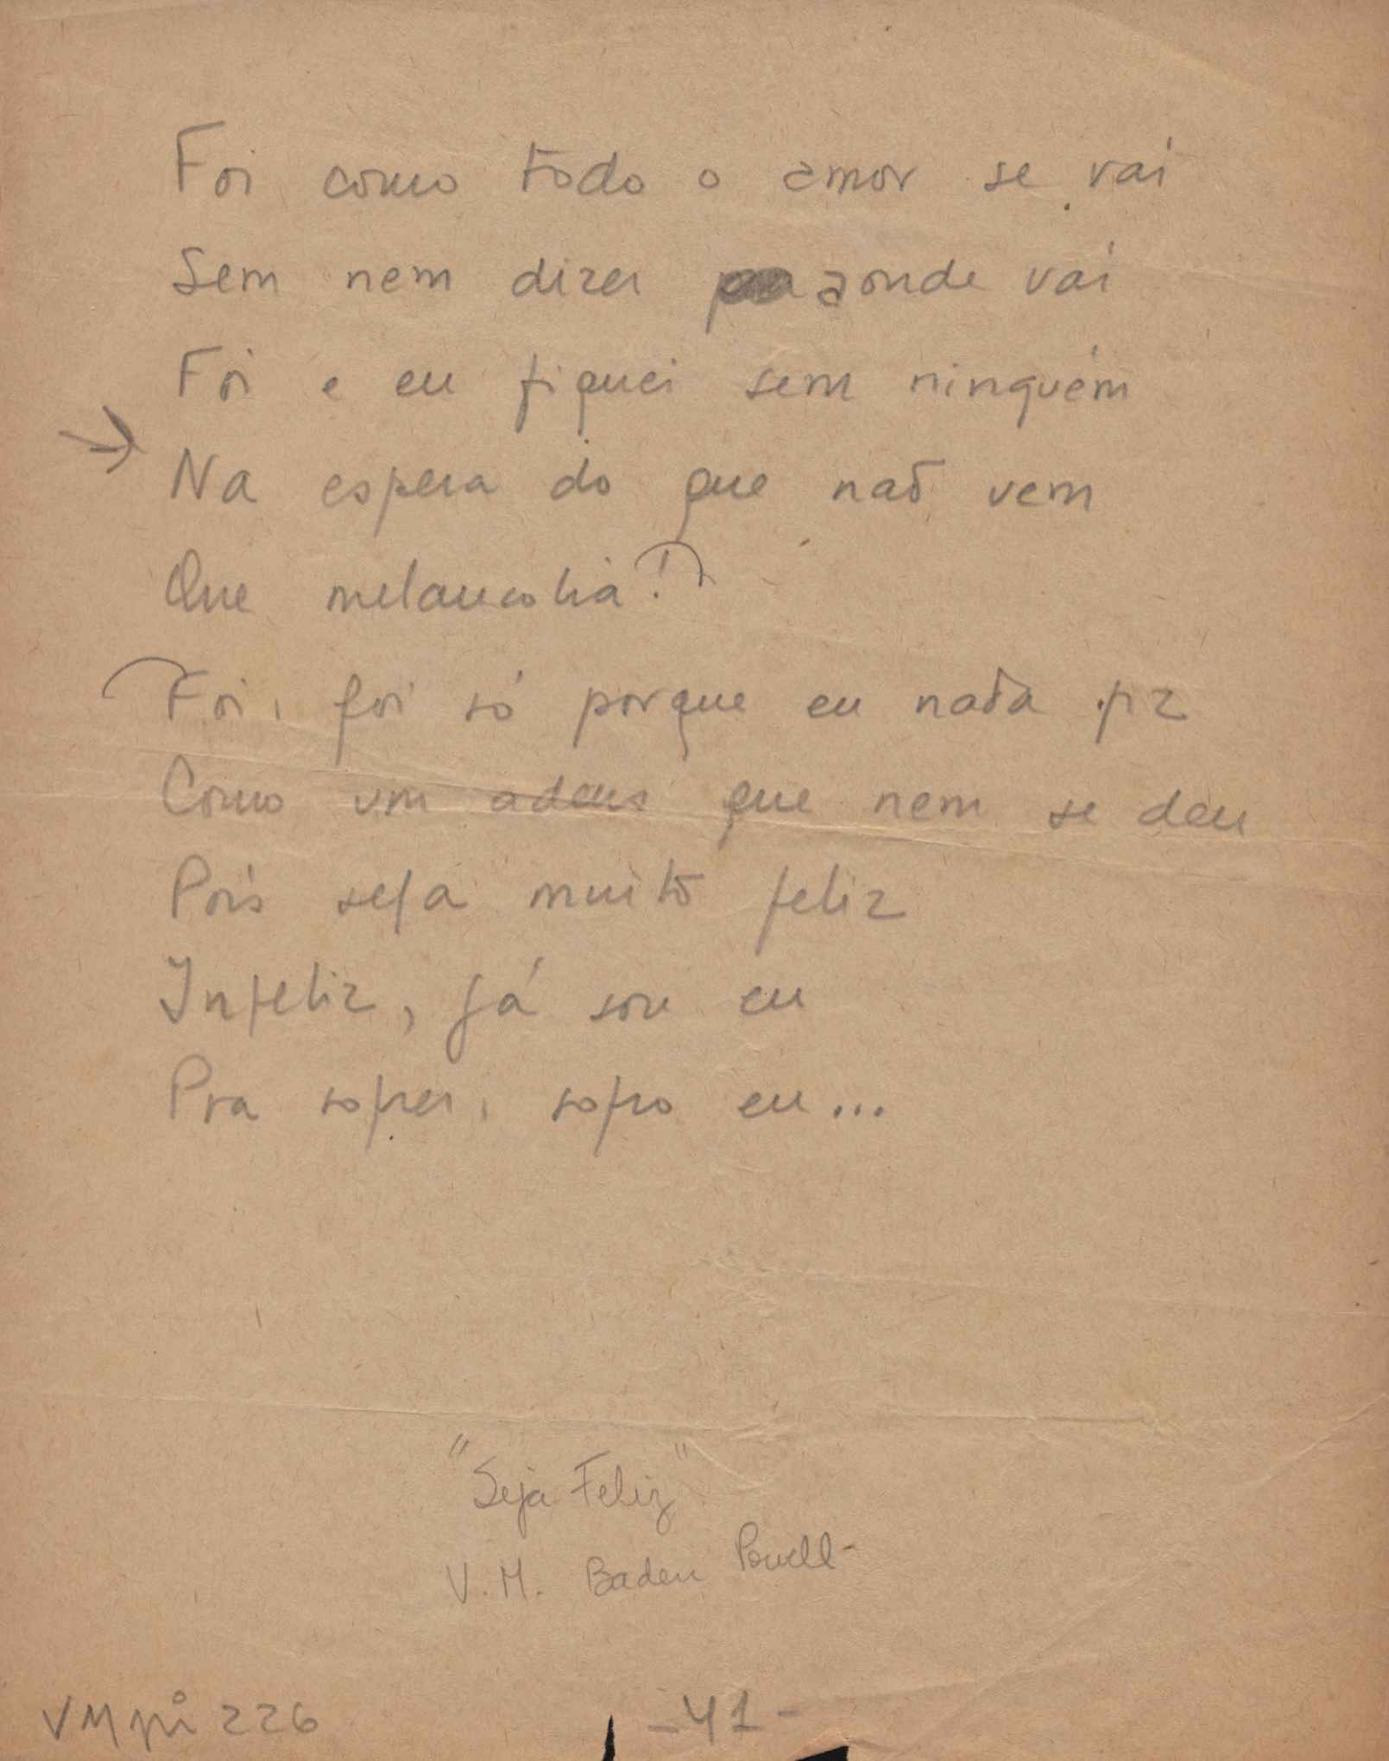 Foi como todo o amor se vai
Sem nem dizer aonde vai
Foi e eu fiquei sem ninguém
→ Na espera do que não vem
Que melancolia!
Foi, foi só porque eu nada fiz
Como um adeus que nem se deu
Pois seja muito feliz
Infeliz, já sou eu
Pra sofrer, sofro eu...
"Seja Feliz"
V.M. Baden Powell
VMpi 226
- 41 -